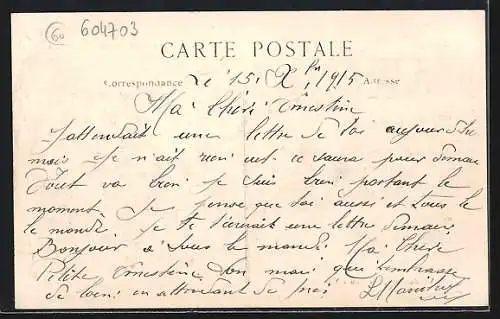 60 604703
CARTE POSTALE
Correspondance Le 15 Xbre 1915 Adresse
Ma Chère Ernestine
J'attendait une lettre de toi aujourd'hu
mais je n'ait rien ut ce saura pour demain
Tout va bien je suis bien portant le
moment. Je pense que toi aussi et tous le
le monde. Je te t'écrirait une lettre demain.
Bonjour a tous le monde. Ma Chère
Petite Ernestine ton mari qui t'embrasse
de loin en attendant de près